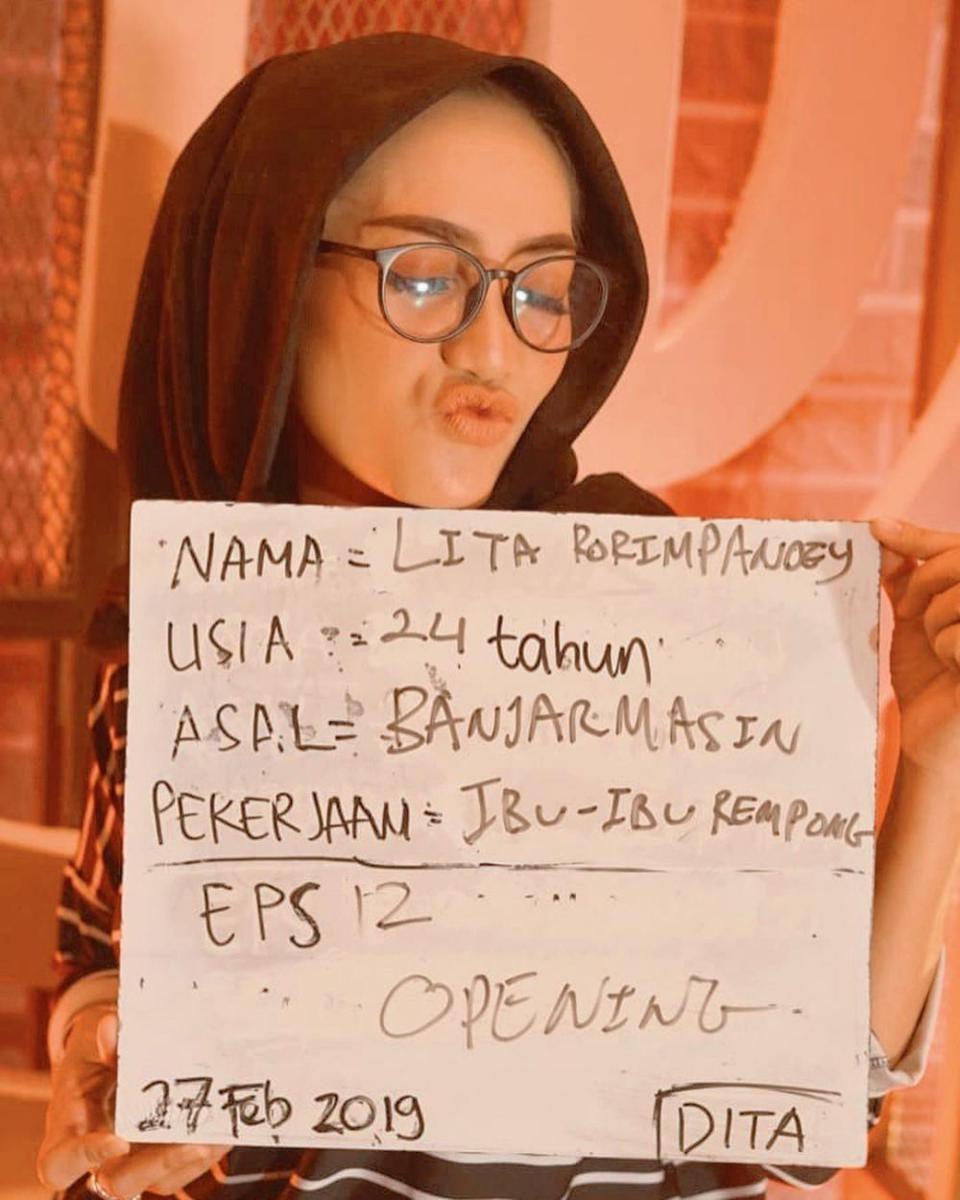 NAMA = LITA RORIMPANDEY
USIA = 24 tahun
ASAL = BANJARMASIN
PEKERJAAN = IBU-IBU REMPONG
EPS 12
OPENING
27 Feb 2019
DITA